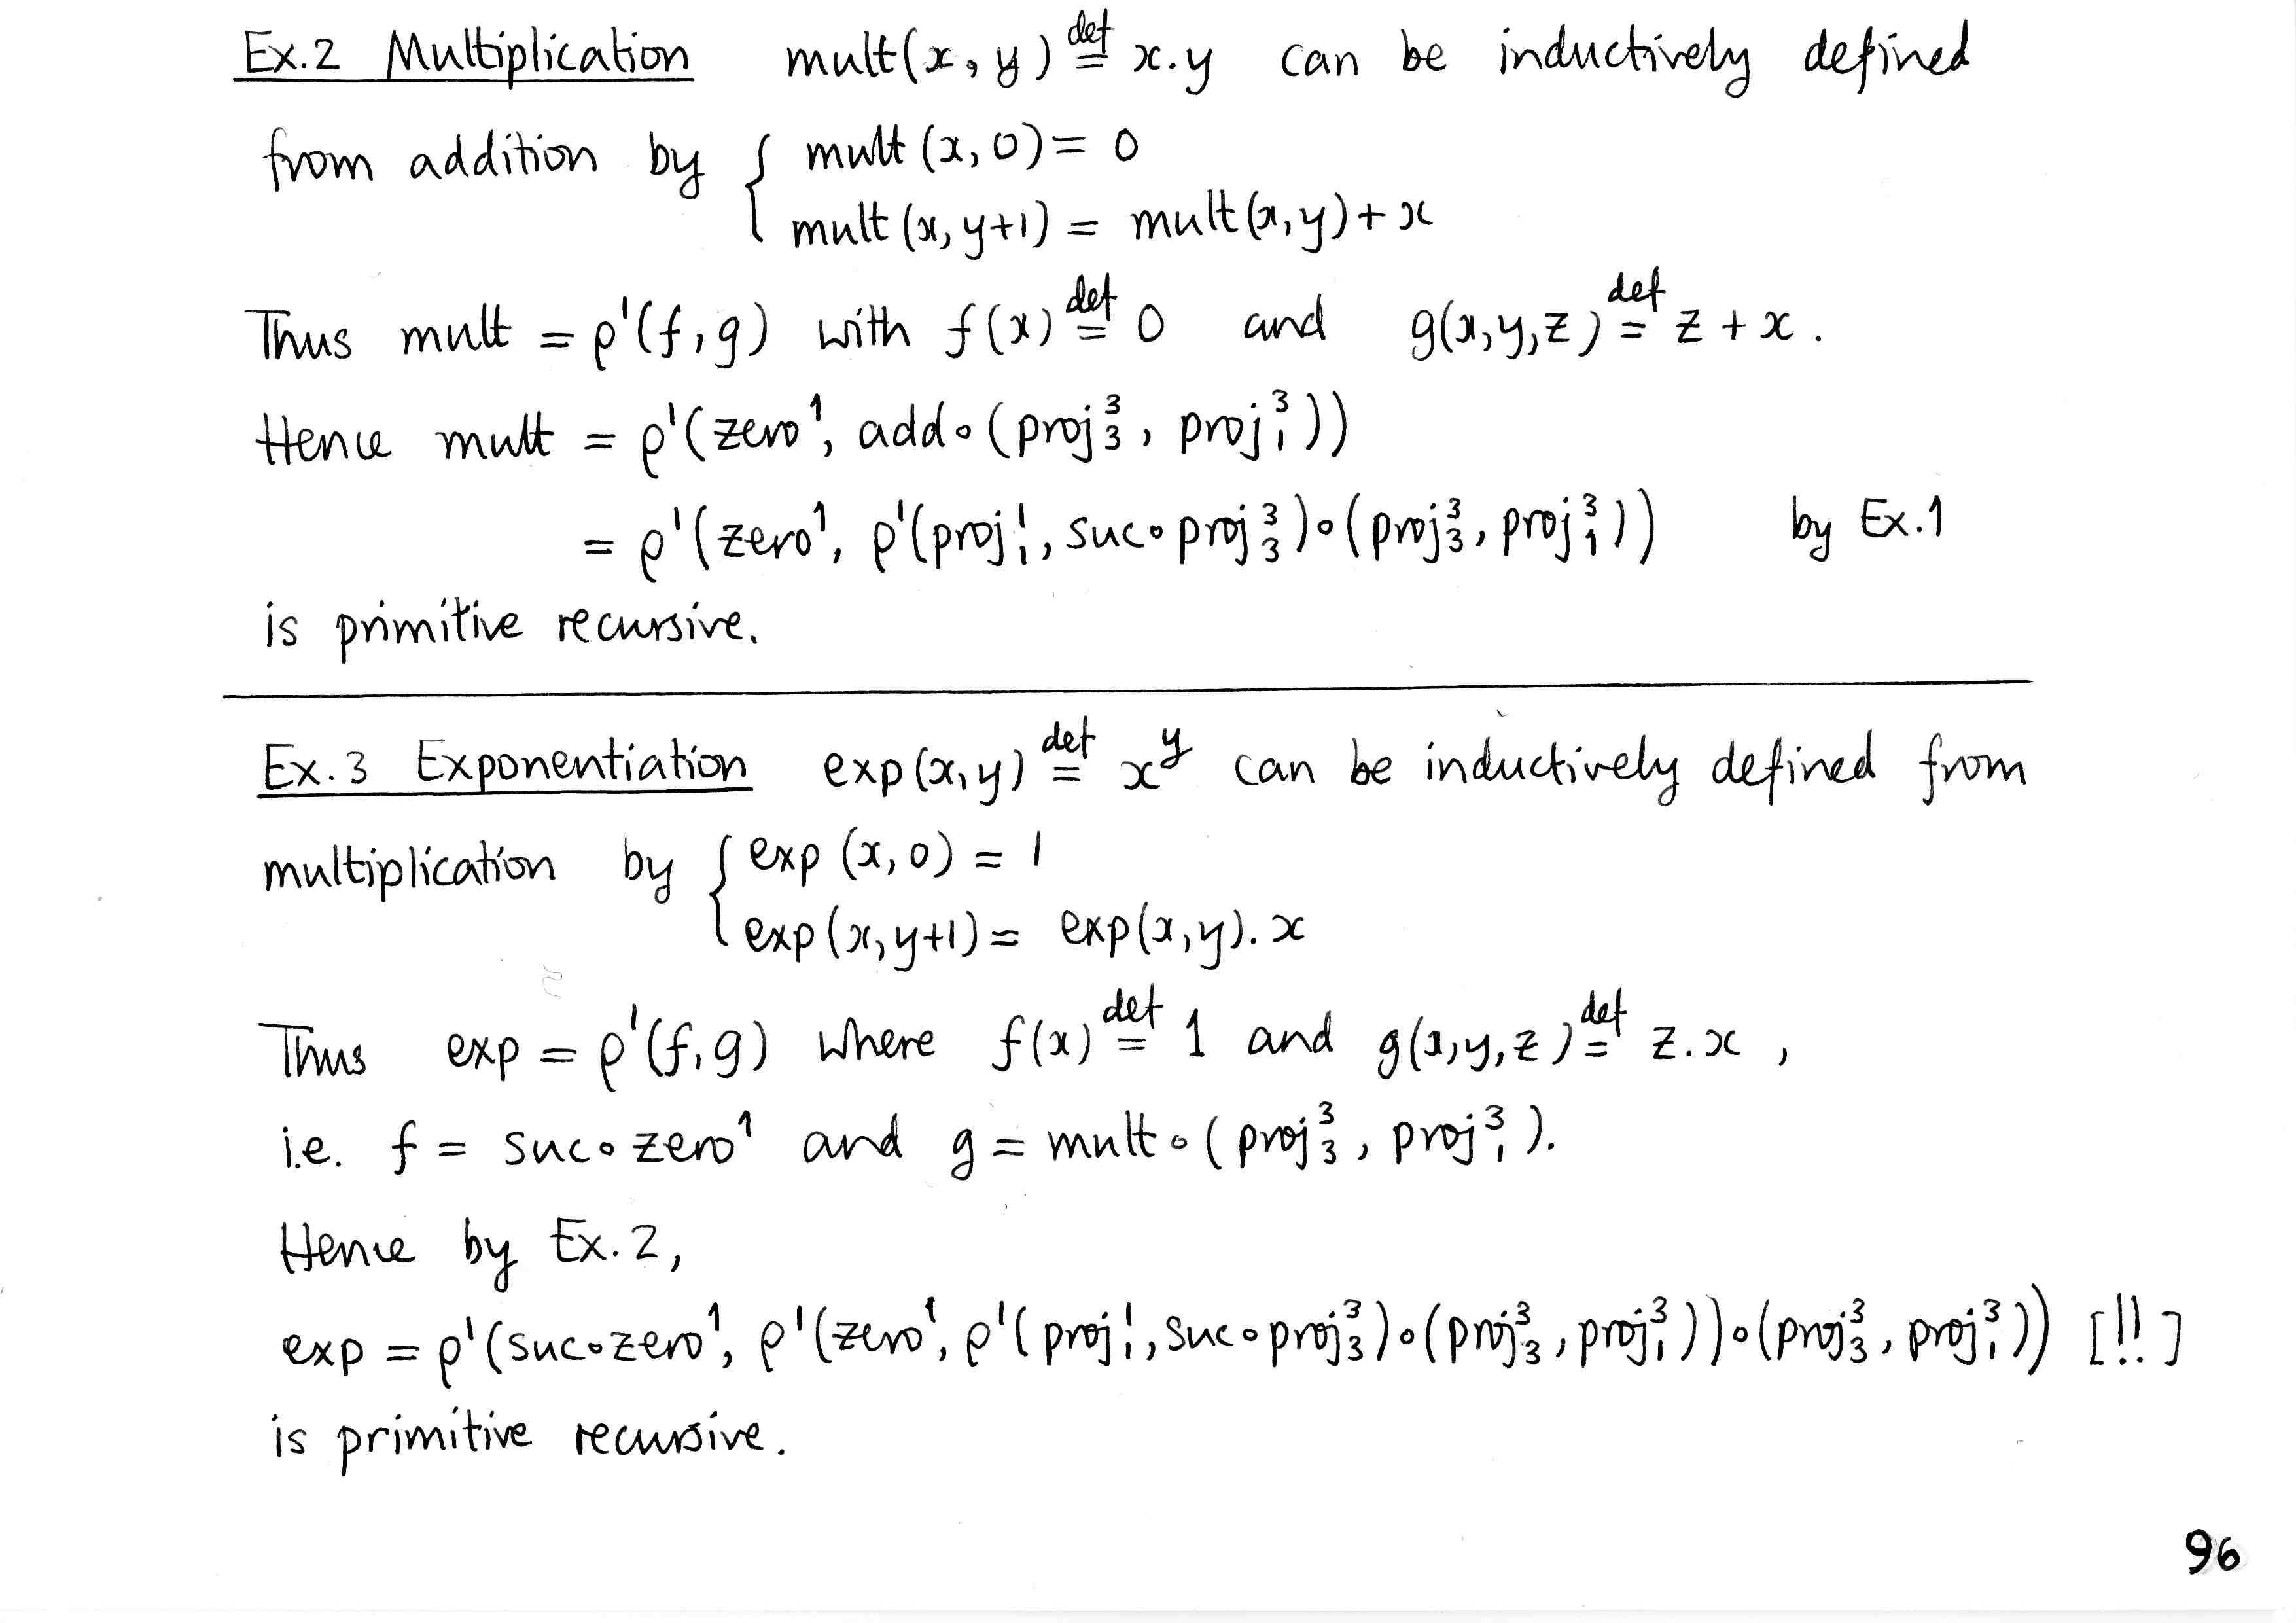 Ex.2 Multiplication mult(x, y) ≝ x.y can be inductively defined
from addition by { mult(x, 0) = 0
mult(x, y+1) = mult(x, y) + x
Thus mult = ρ¹(f, g) with f(x) ≝ 0 and g(x, y, z) ≝ z + x.
Hence mult = ρ¹(zero¹, add∘(proj³₃, proj³₁))
= ρ¹(zero¹, ρ¹(proj¹₁, suc∘proj³₃)∘(proj³₃, proj³₁)) by Ex.1
is primitive recursive.
Ex.3 Exponentiation exp(x, y) ≝ xʸ can be inductively defined from
multiplication by { exp(x, 0) = 1
exp(x, y+1) = exp(x, y).x
Thus exp = ρ¹(f, g) where f(x) ≝ 1 and g(x, y, z) ≝ z.x,
i.e. f = suc∘zero¹ and g = mult∘(proj³₃, proj³₁).
Hence by Ex.2,
exp = ρ¹(suc∘zero¹, ρ¹(zero¹, ρ¹(proj¹₁, suc∘proj³₃)∘(proj³₃, proj³₁))∘(proj³₃, proj³₁)) [!!]
is primitive recursive.
96